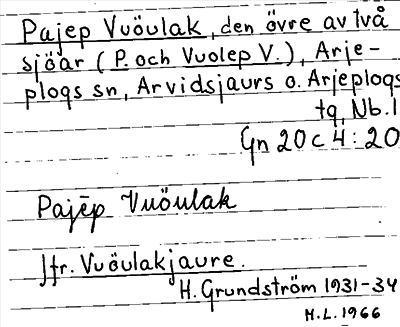 Pajep Vuöulak, den övre av två
sjöar (P. och Vuolep V.), Arje-
plogs sn, Arvidsjaurs o. Arjeplogs
tg, Nb. l
Gn 20 c 4 : 20
Pajēp Vuöulak
Jfr. Vuöulakjaure.
H. Grundström 1931-34
H.L. 1966